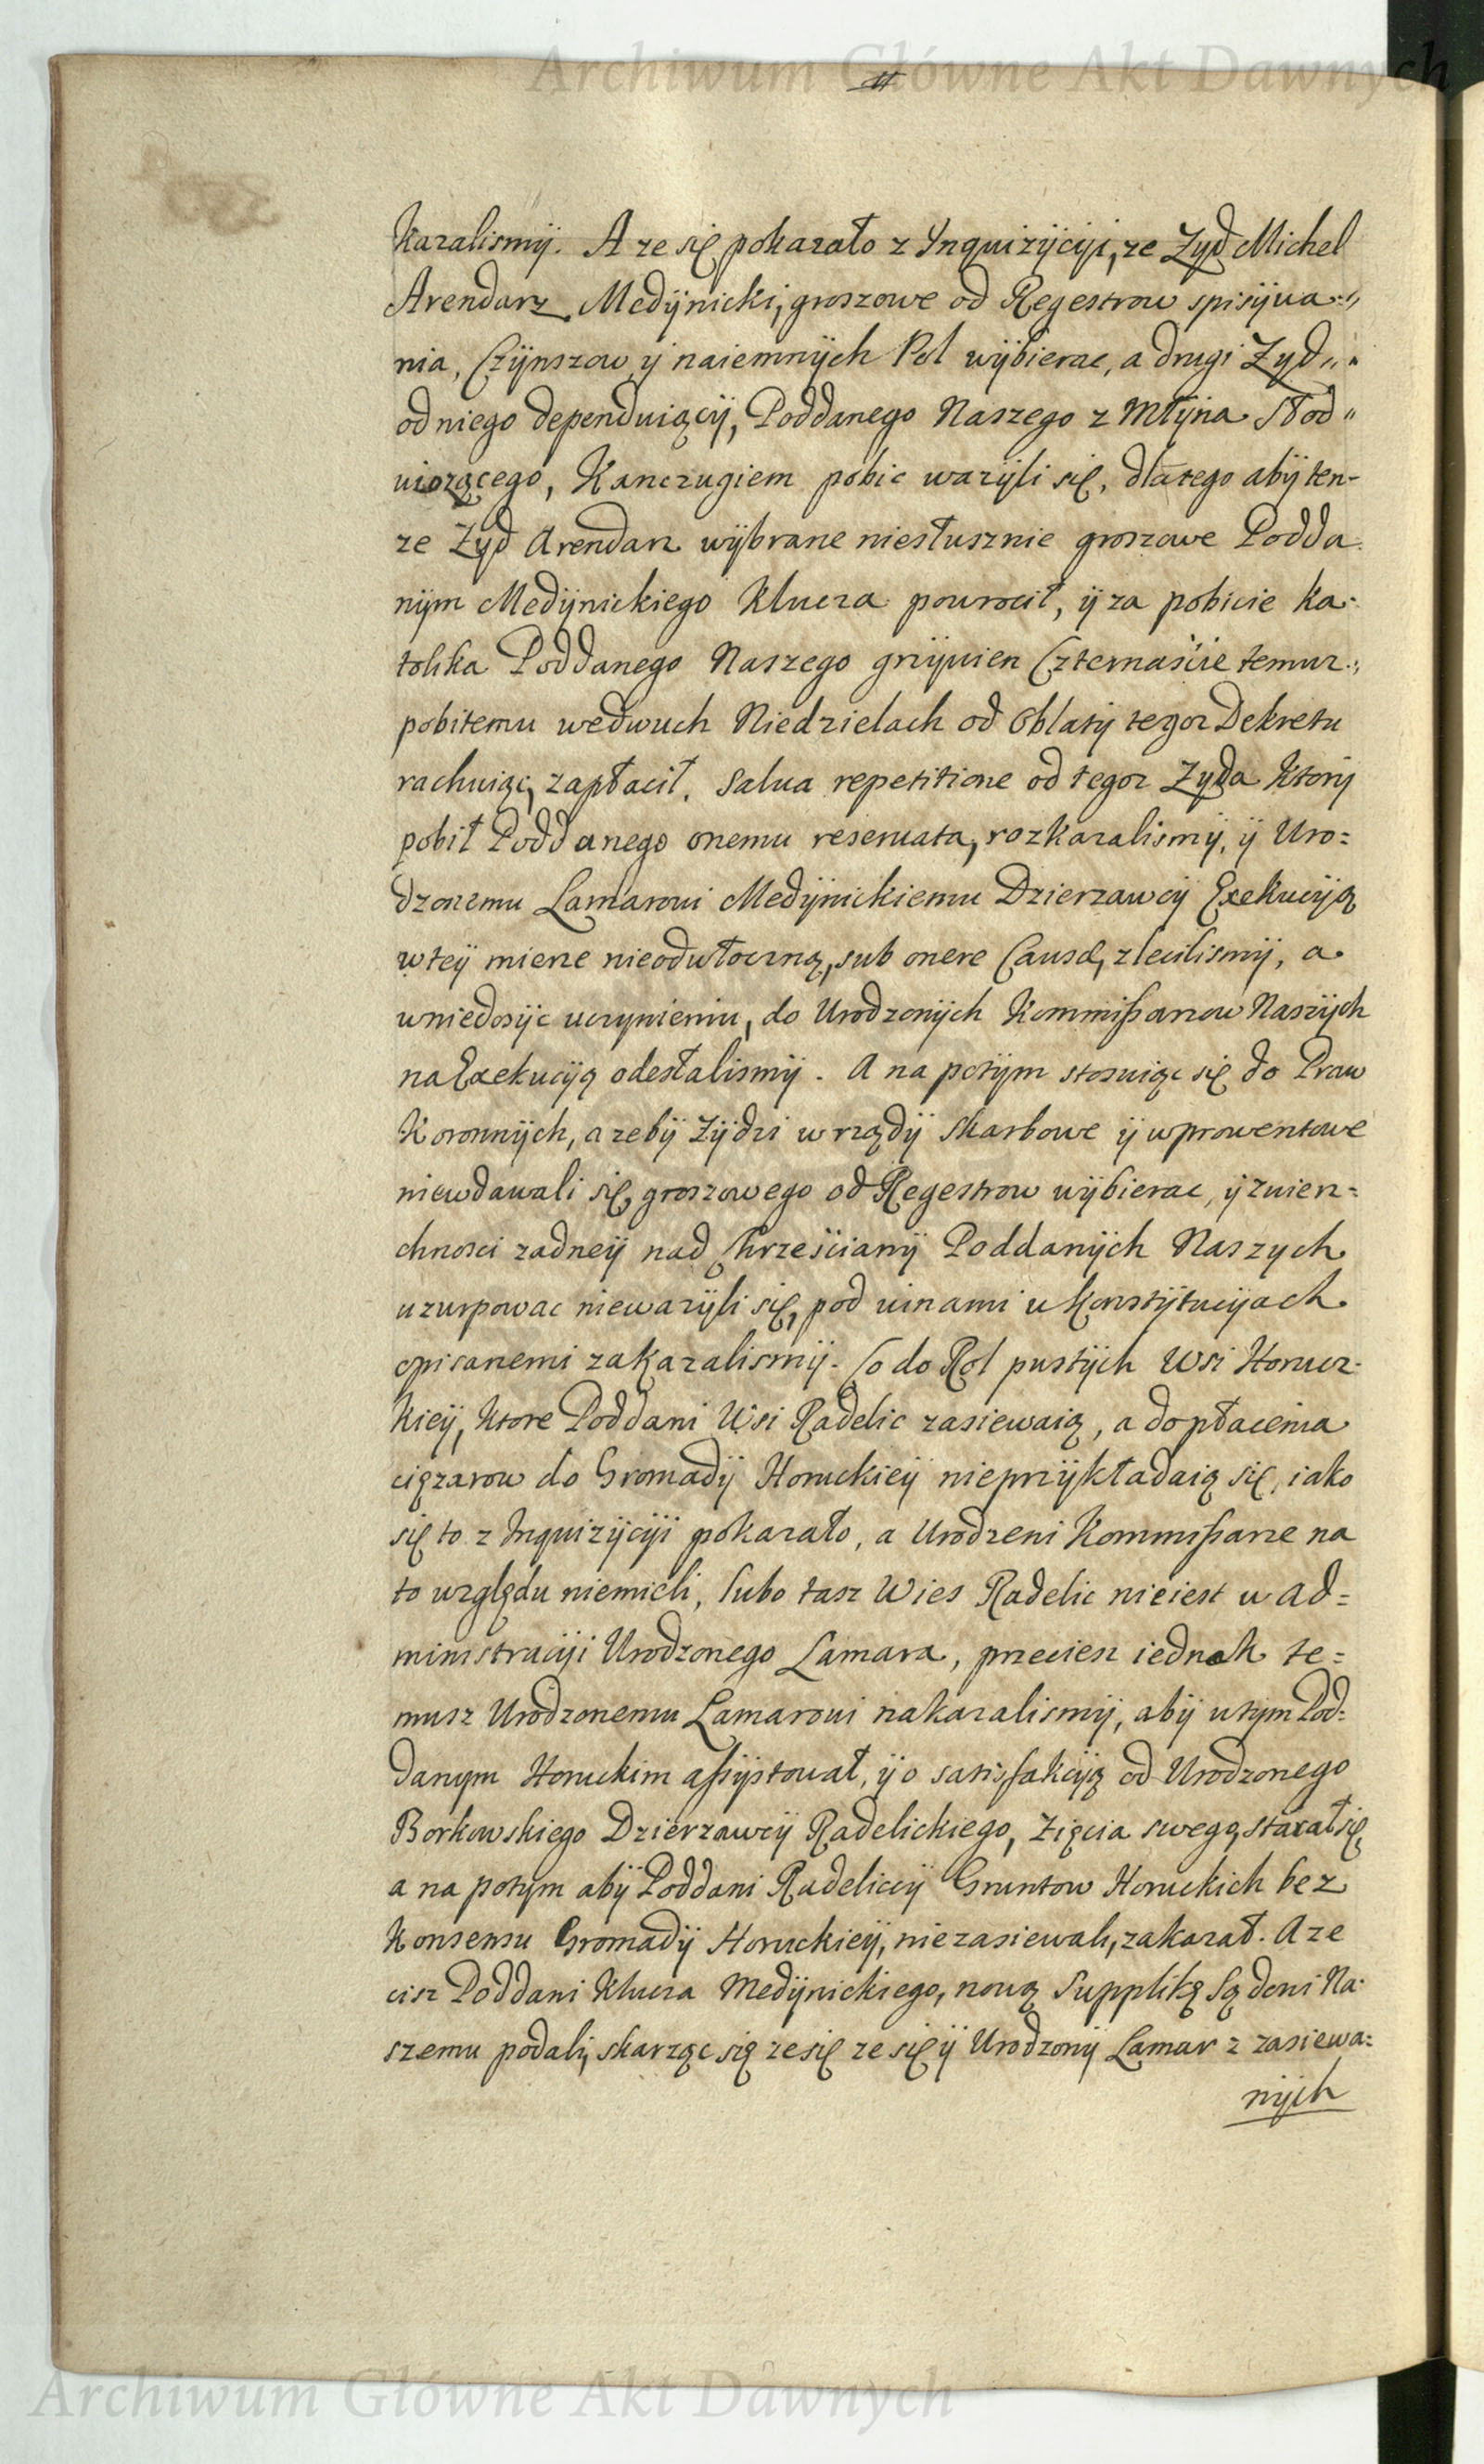 Archiwum Główne Akt Dawnych
kazalismÿ. A ze się pokazało z Jnquizÿcÿi, ze Zyd Michel
Arendarz Medÿnicki, groszowe od Regestrow spisÿwa„
nia, Czÿnszow ÿ naiemnÿch Pol wÿbierac, a drugi Zyd„
od niego dependuiącÿ, Poddanego Naszego z Młÿna Słod„
wiozącego, Kanczugiem pobic wazÿli się, dlatego abÿ ten-
ze Zyd Arendarz wÿbrane niesłusznie groszowe Podda
nÿm Medÿnickiego Klucza powrocił, ÿ za pobicie Ka-
tolika Poddanego Naszego grzÿwien Czternaście temuz„
pobitemu wedwuch Niedzielach od Oblatÿ tegoz Dekretu
rachuiąc, zapłacił. Salva repetitione od tegoz Zyda ktorÿ
pobił Poddanego onemu reservata, rozkazalismÿ, ÿ Uro=
dzonemu Lamarowi Medÿnickiemu Dzierzawcÿ Exekucÿą
wteÿ mierze nieodwłoczną, sub onere Causæ, zlecilismÿ, a
wniedosÿc uczynieniu, do Urodzonÿch Kommißarzow Naszÿch
na Exekucÿą odesłalismÿ. A na potÿm stosuiąc się do Praw
Koronnÿch, azebÿ Zÿdzi wrządÿ Skarbowe ÿ wprowentowe
niewdawali się, groszowego od Regestrow wÿbierac, ÿ zwierz=
chnosci zadneÿ nad Chrześcianÿ Poddanÿch Naszych
uzurpowac niewazÿli się, pod winami w Konstÿtucÿach
opisanemi zakazalismÿ. Co do Rol pustÿch Wsi Horucz-
kieÿ, ktore Poddani Wsi Radelic zasiewaią, a do płacenia
cięzarow do Gromadÿ Horuckieÿ nieprzÿkładaią się, iako
się to z Inquizÿcÿi pokazało, a Urodzeni Kommißarze na
to względu niemieli, lubo tasz Wies Radelic nieiest w Ad=
ministracÿi Urodzonego Lamara, przeciesz iednak te=
musz Urodzonemu Lamarowi nakazalismÿ, abÿ wtym Pod=
danym Horuckim aßÿstował, ÿ o satisfakcÿą od Urodzonego
Borkowskiego Dzierzawcÿ Radelickiego, Zięcia swego, starał się
a na potym abÿ Poddani Radeliccÿ Gruntow Horuckich bez
Konsensu Gromadÿ Horuckieÿ, niezasiewali, zakazał. A ze
cisz Poddani Klucza Medÿnickiego, nową Supplikę Sądowi Na-
szemu podali, skarząc się zesię ze się ÿ Urodzonÿ Lamar z zasiewa=
nÿch
Archiwum Główne Akt Dawnych